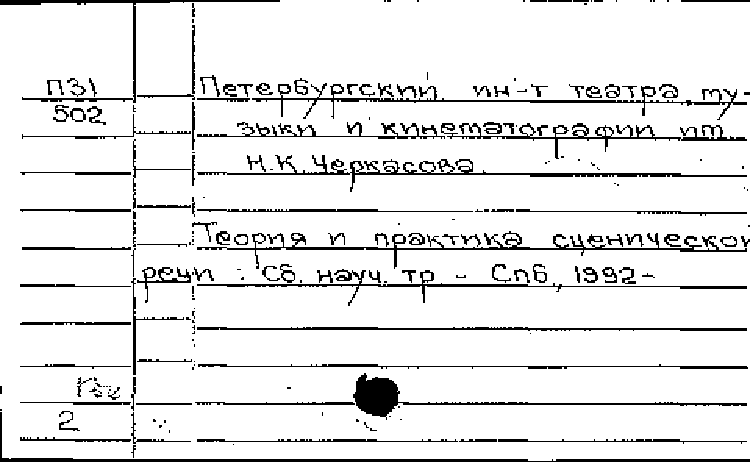 П31
502
Петербургский ин-т театра, му-
зыки и кинематографии им.
Н.К. Черкасова.
Теория и практика сценической
речи : Сб. науч. тр - Спб., 1992-
2